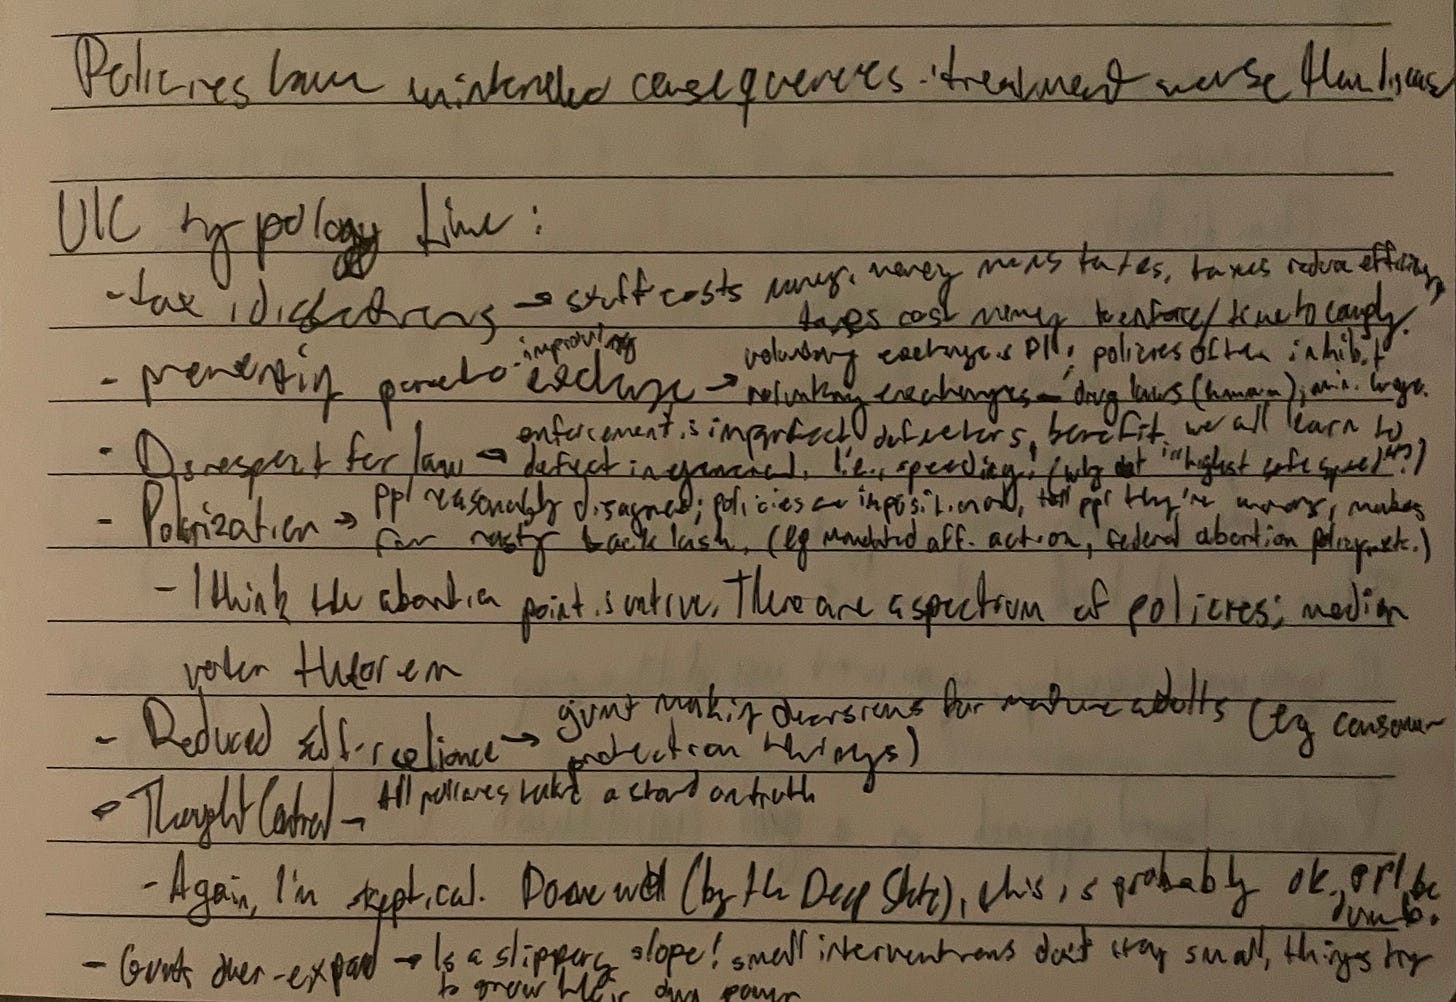 Policies have unintended consequences - "treatment worse than disease
UIC typology time:
- tax distortions → stuff costs money, money means taxes, taxes reduce efficiency,
taxes cost money to enforce/time to comply.
- preventing pareto-improving exchange → voluntary exchange is PI; policies often inhibit
voluntary exchanges - drug laws (hmmm); min. wage.
- Disrespect for law → enforcement is imperfect, defectors benefit, we all learn to
defect in general. I.e., speeding! (why not "highest safe speed"?)
- Polarization → ppl reasonably disagree; policies are imposition and, tell ppl they're wrong, makes
for nasty backlash. (eg mandated aff. action, federal abortion policy, etc.)
- I think the abortion point is naive. There are a spectrum of policies; median
voter theorem
- Reduced self-reliance → gvmt making decisions for mature adults (eg consumer
protection things)
- Thought Control → All policies take a stand on truth
- Again, I'm skeptical. Done well (by the Deep State), this is probably ok, ppl be
dumb.
- Gvmts over-expand → Is a slippery slope! small interventions don't stay small, things try
to grow their own power